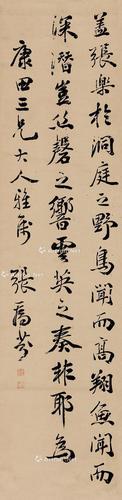 蓋張樂於洞庭之野鳥聞而高翔魚聞而
深潛豈絲磬之響雲英之奏非耶為
康田三兄大人雅屬 張喬芬